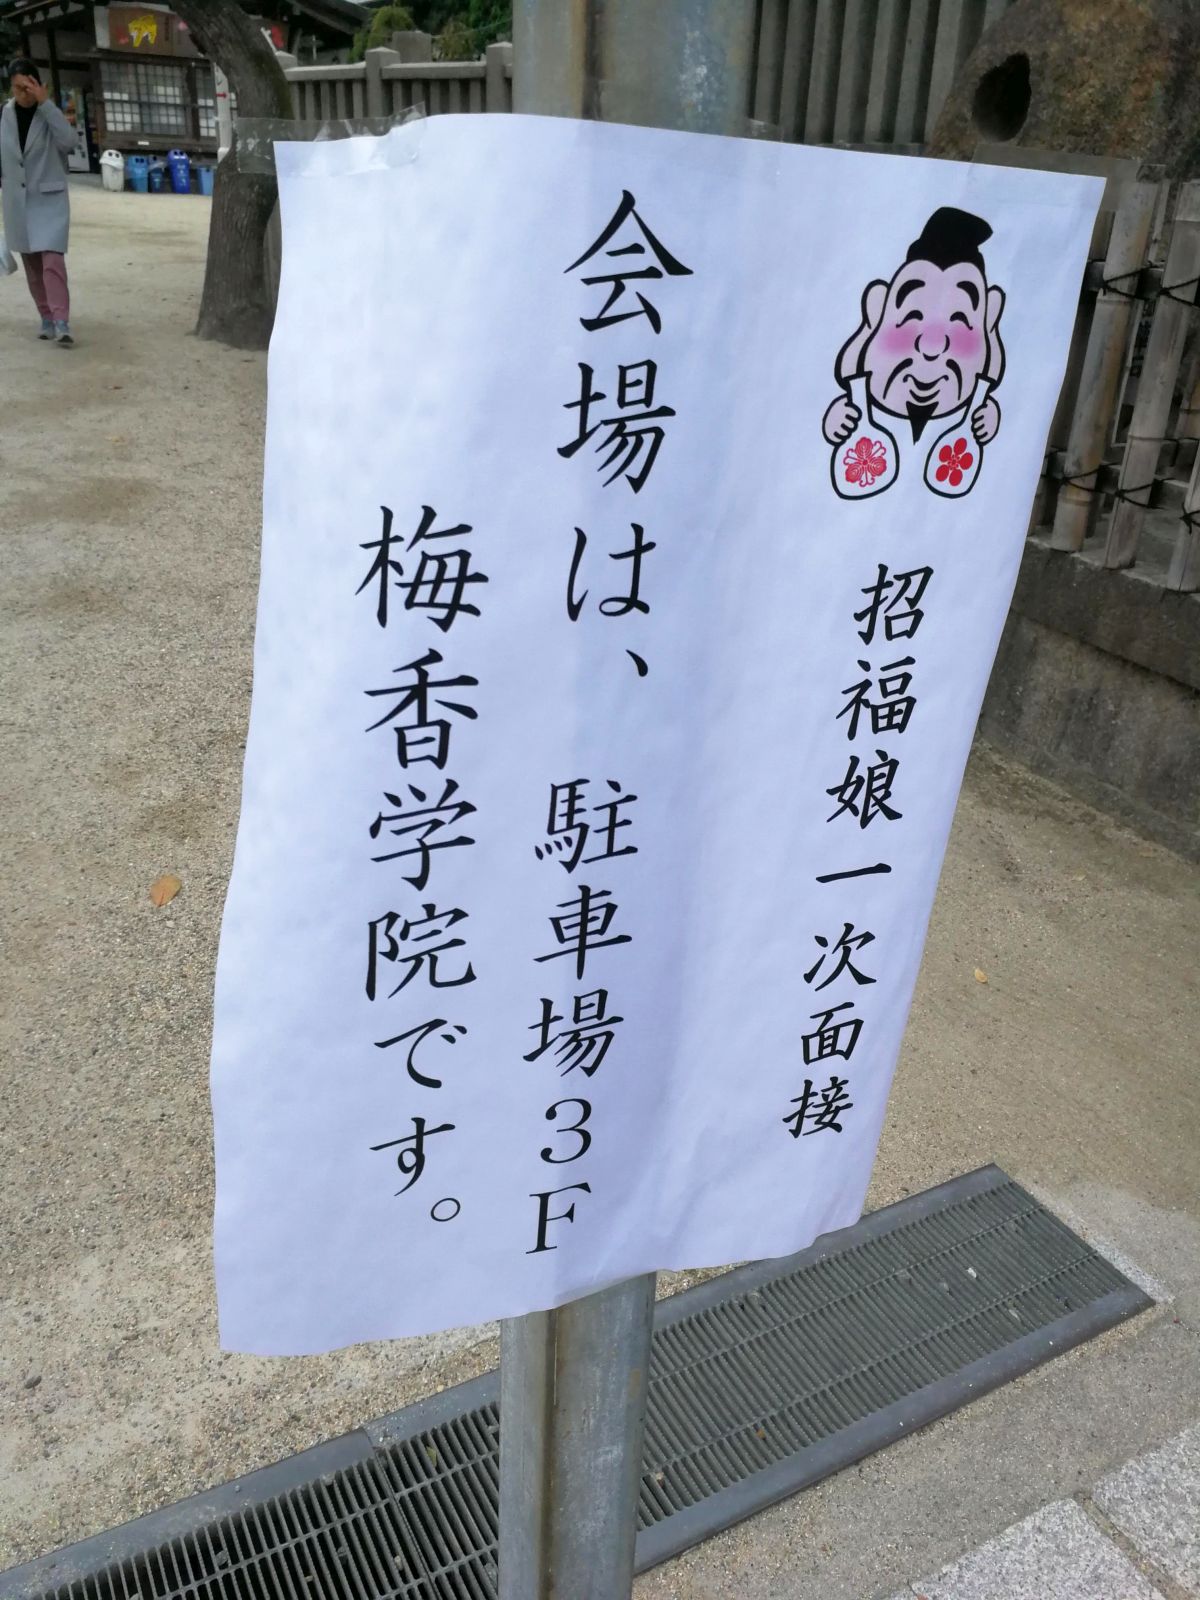 招福娘一次面接
会場は、駐車場３Ｆ
梅香学院です。